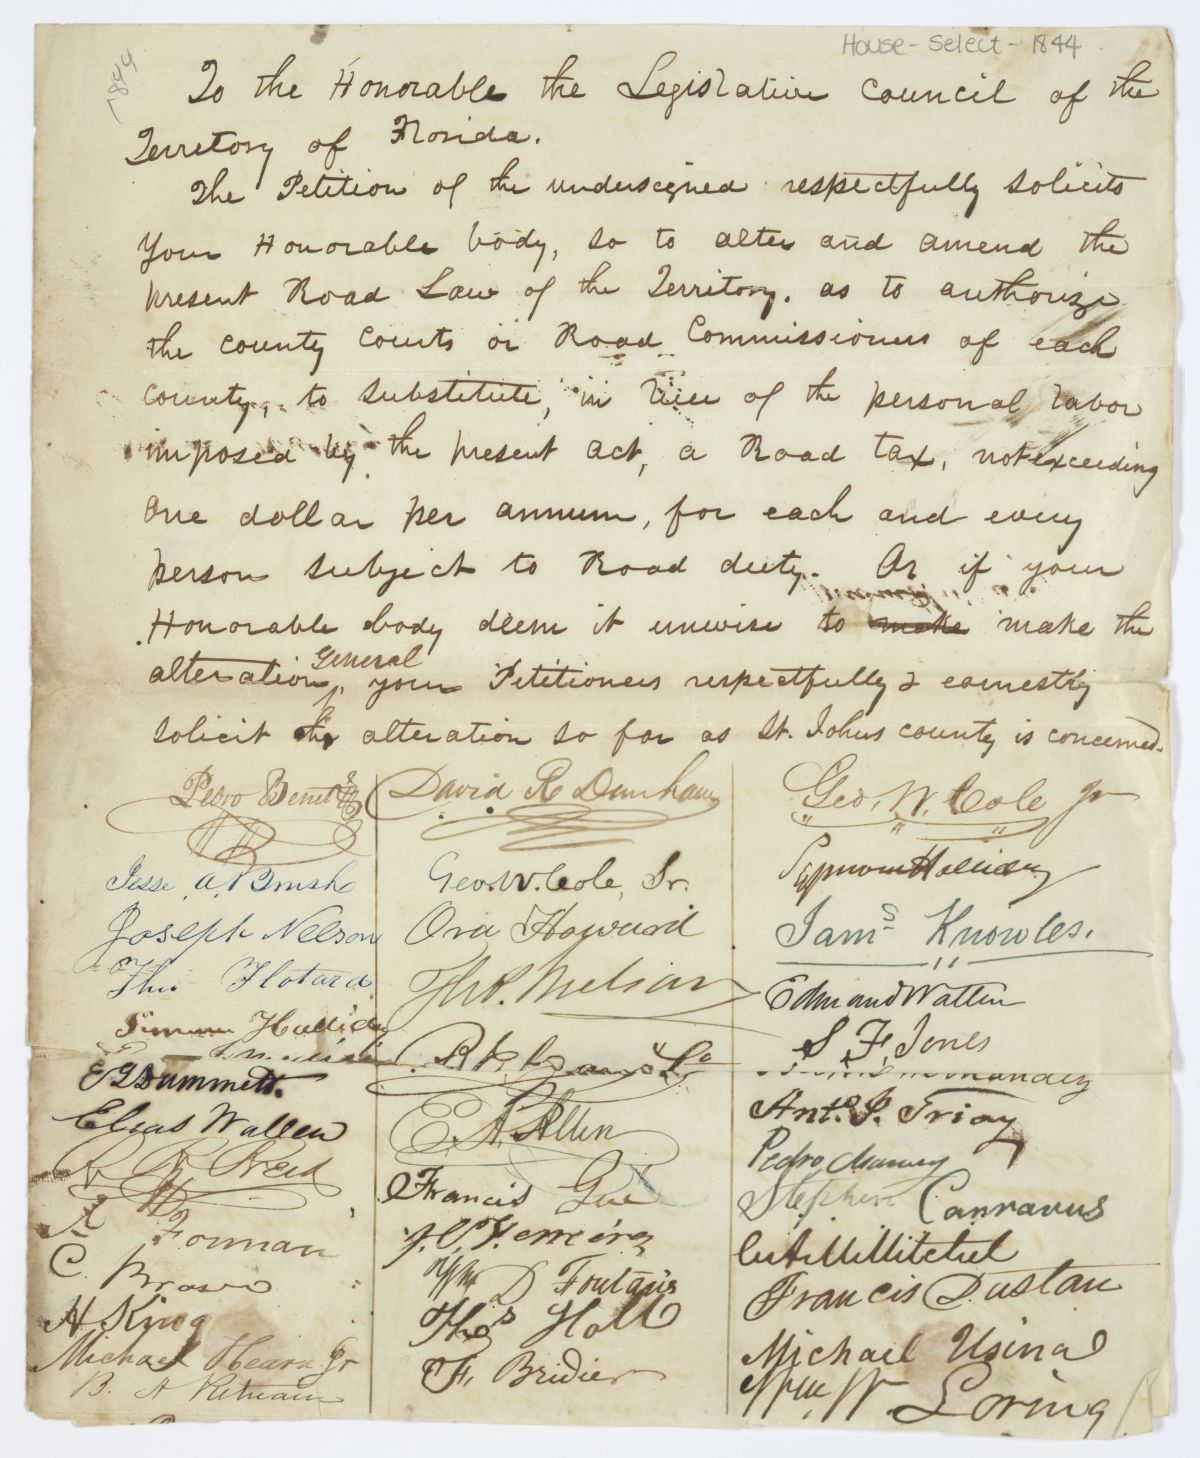 House - Select - 1844
1844
To the Honorable the Legislative Council of the
Territory of Florida.
The Petition of the undersigned respectfully solicits
Your Honorable body, so to alter and amend the
present Road Law of the Territory, as to authorize
the county Courts or Road Commissioners of each
county, to substitute, in lieu of the personal labor
imposed by the present act, a Road tax, not exceeding
One dollar per annum, for each and every
person subject to Road duty. Or if your
Honorable body deem it unwise to make make the
alteration General, your Petitioners respectfully & earnestly
solicit the alteration so far as St. Johns county is concerned.
Pedro Benet
Jesse A.
Joseph Nelson
Theo. Flotard
Hallida
E G Dummett.
Elias Wallen
Reed
A Forman
C. Bravo
H King
Michael Hearn Jr
B. A Putnam
David R Dunham
Geo. W. Cole, Sr.
Ora Howard
E. A. Allen
Francis Gue
Wm D Fontane
Thos Holl
F. Bridier
Geo. W. Cole Jr
Jams Knowles.
Edmund Wallen
S F. Jones
Ant. P. Triay
Pedro
Stephen Canravus
Francis Dustan
Michael Usina
Wm W. Loring